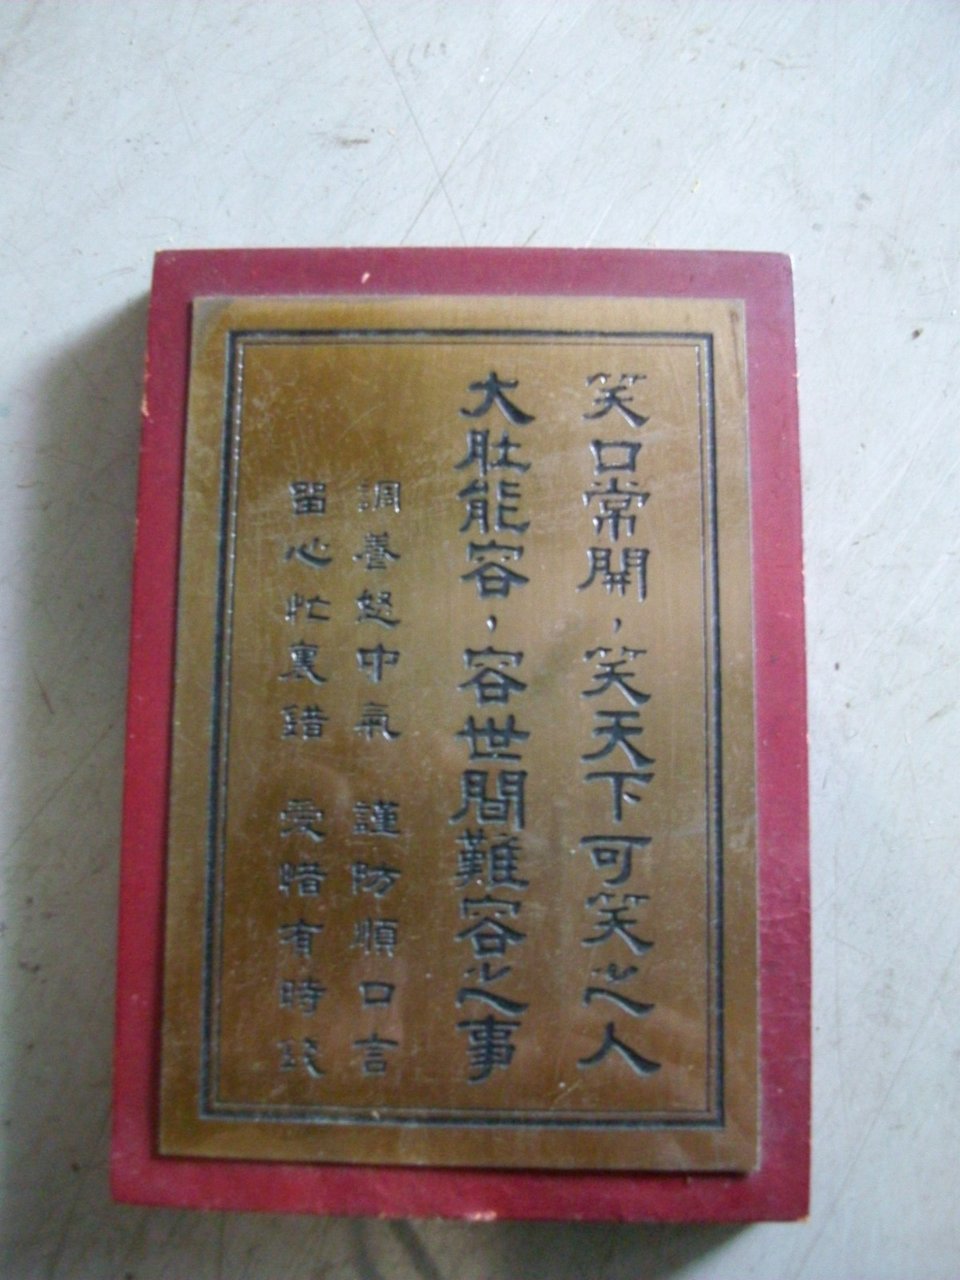 笑口常開，笑天下可笑之人
大肚能容，容世間難容之事
調養怒中氣 謹防順口言
留心忙裏錯 愛惜有時錢